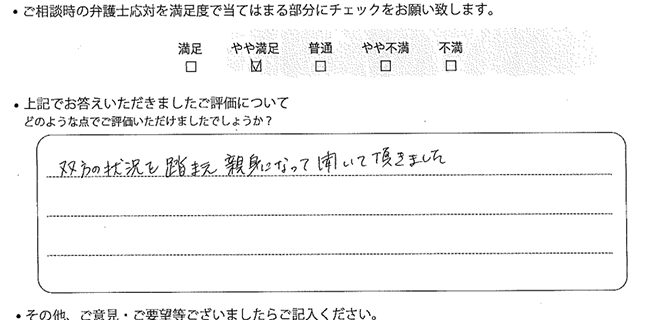 ・ご相談時の弁護士応対を満足度で当てはまる部分にチェックをお願い致します。
満足 やや満足 普通 やや不満 不満
□ ☑ □ □ □
・上記でお答えいただきましたご評価について
どのような点でご評価いただけましたでしょうか？
双方の状況を踏まえ 親身になって聞いて頂きました
・その他、ご意見・ご要望等ございましたらご記入ください。